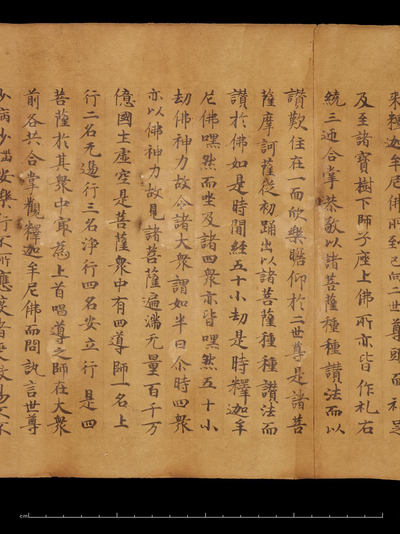 来釋迦牟尼佛所到已向二世尊頭面礼足
及至諸寶樹下師子座上佛所亦皆作礼右
繞三迊合掌恭敬以諸菩薩種種讃法而以
讃歎住在一面欣樂瞻仰於二世尊是諸菩
薩摩訶薩從初踊出以諸菩薩種種讃法而
讃於佛如是時間經五十小劫是時釋迦牟
尼佛嘿然而坐及諸四衆亦皆嘿然五十小
劫佛神力故令諸大衆謂如半日尒時四衆
亦以佛神力故見諸菩薩遍滿无量百千万
億國土虛空是菩薩衆中有四導師一名上
行二名无邊行三名淨行四名安立行是四
菩薩於其衆中冣為上首唱導之師在大衆
前各共合掌觀釋迦牟尼佛而問訊言世尊
少病少惱安樂行不所應度者受教易不
cm